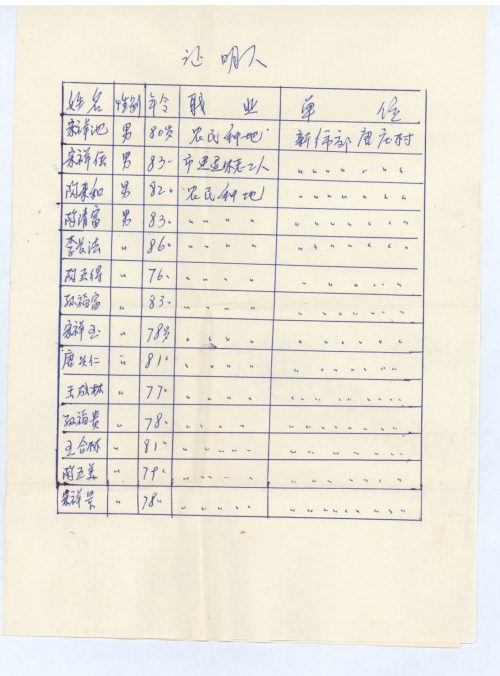 证明人
姓名 性别 年令 职业 单位
宋祥池 男 80岁 农民种地 新纬郭唐庄村
宋祥 男 83〃 市 工人 〃〃〃〃〃〃
陶来和 男 82〃 农民种地 〃〃〃〃〃〃
陶清富 男 83〃 〃〃〃〃 〃〃〃〃〃〃
李长法 〃 86〃 〃〃〃〃 〃〃〃〃〃〃
陶玉得 〃 76〃 〃〃〃〃 〃〃〃〃〃〃
孙福富 〃 83〃 〃〃〃〃 〃〃〃〃〃〃
宋祥玉 〃 78岁 〃〃〃〃 〃〃〃〃〃〃
唐兴仁 〃 81〃 〃〃〃〃 〃〃〃〃〃〃〃
王成林 〃 77〃 〃〃〃〃 〃〃〃〃〃〃〃
孙福贵 〃 78〃 〃〃〃〃 〃〃〃〃〃〃〃
王合林 〃 81〃 〃〃〃〃 〃〃〃〃〃〃〃
陶玉美 〃 79〃 〃〃〃〃 〃〃〃〃〃〃〃
宋祥景 〃 78〃 〃〃〃〃 〃〃〃〃〃〃〃